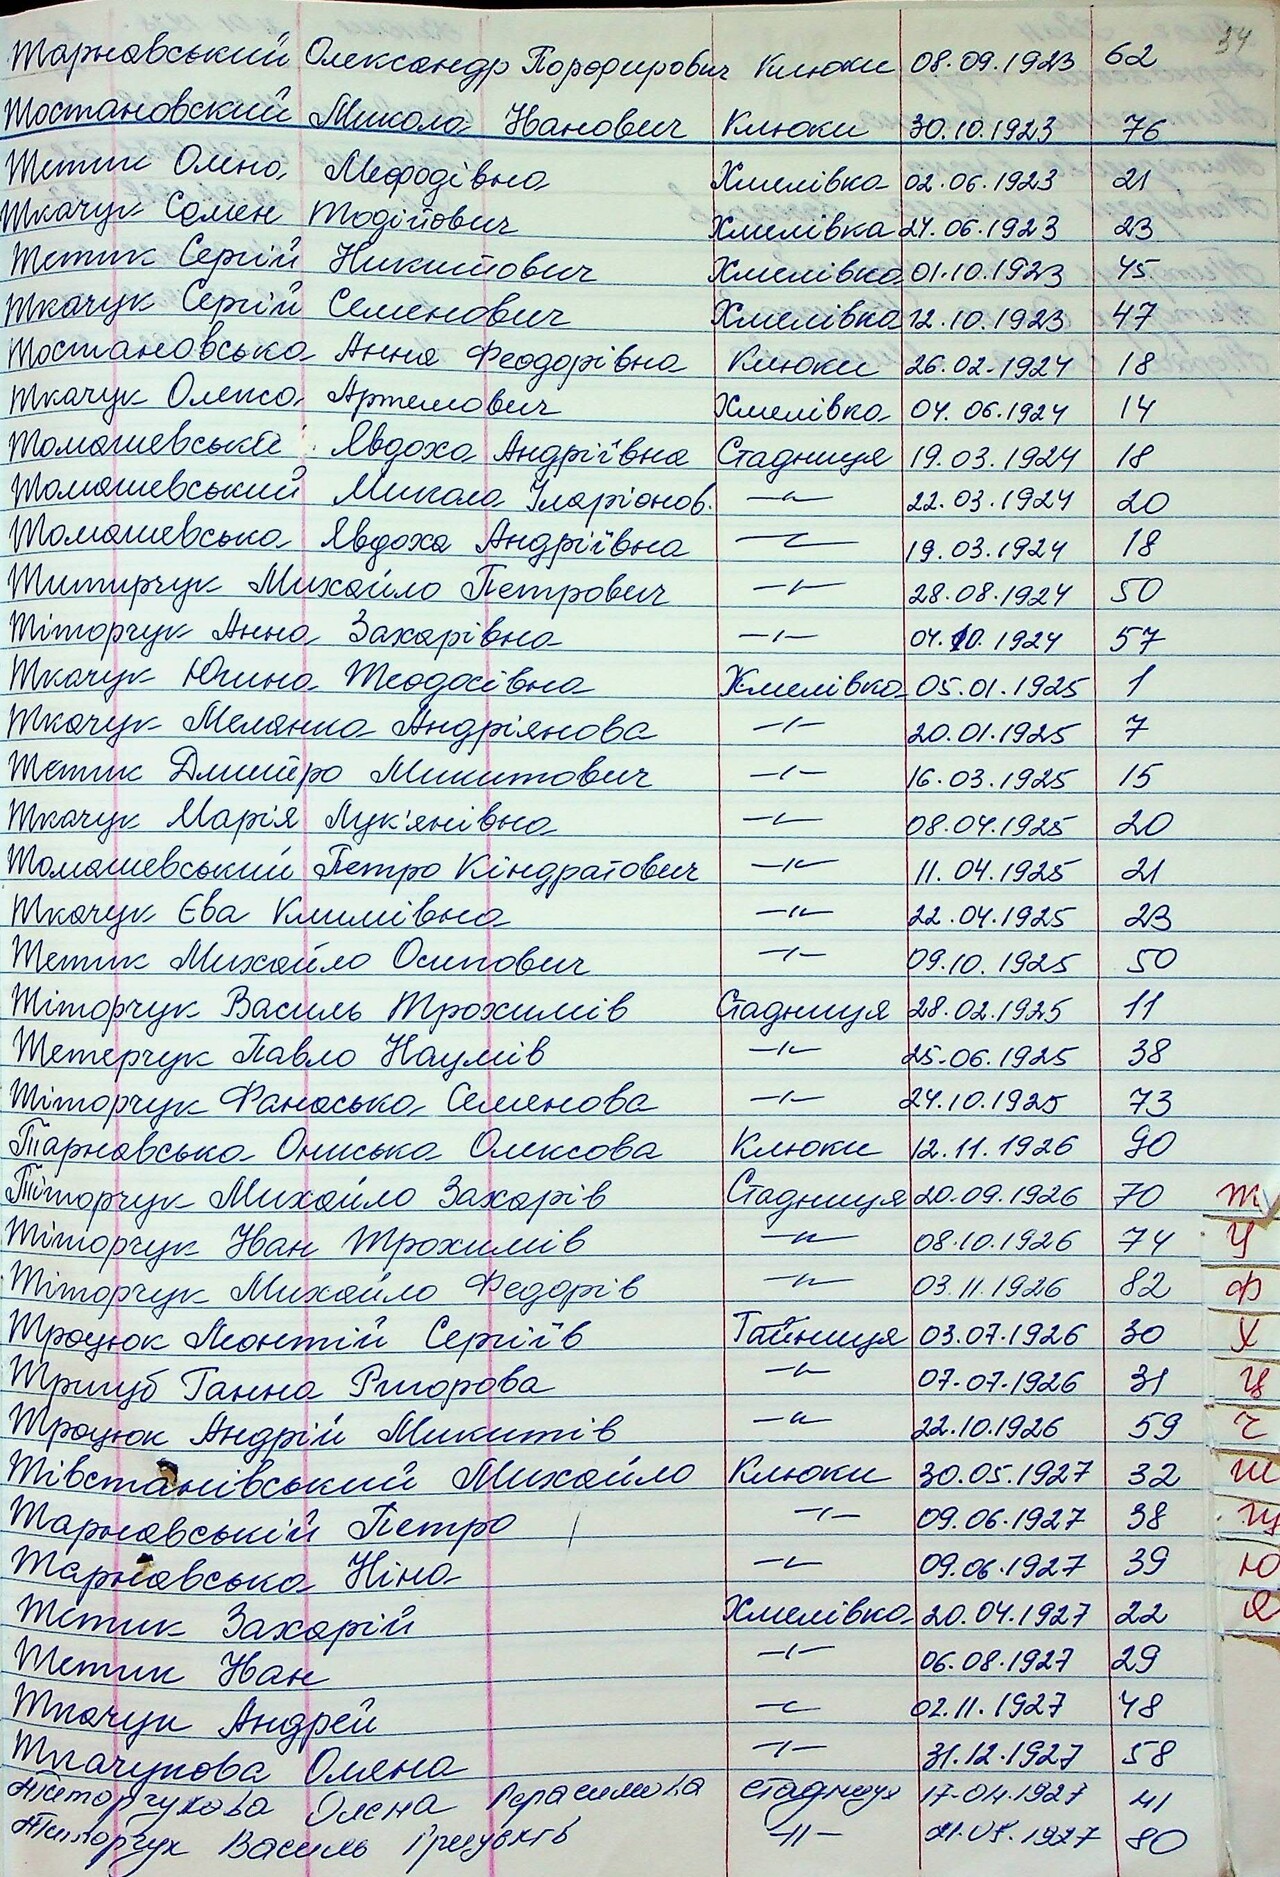 34
Тарнавський Олександр Порфирович Клюки 08.09.1923 62
Тостановский Микола Іванович Клюки 30.10.1923 76
Тетик Олена Мефодівна Хмелівка 02.06.1923 21
Ткачук Семен Тодійович Хмелівка 24.06.1923 23
Тетик Сергій Никитович Хмелівка 01.10.1923 45
Ткачук Сергій Семенович Хмелівка 12.10.1923 47
Тостановська Анна Феодорівна Клюки 26.02.1924 18
Ткачук Олекса Артемович Хмелівка 04.06.1924 14
Томашевській Явдоха Андріївна Стадниця 19.03.1924 18
Томашевський Микола Іларіонов. —"— 22.03.1924 20
Томашевська Явдоха Андріївна —"— 19.03.1924 18
Титирчук Михайло Петрович —"— 28.08.1924 50
Тіторчук Анна Захарівна —"— 04.10.1924 57
Ткачук Югина Теодосівна Хмелівка 05.01.1925 1
Ткачук Меланка Андріянова —"— 20.01.1925 7
Тетик Дмитро Микитович —"— 16.03.1925 15
Ткачук Марія Лук'янівна —"— 08.04.1925 20
Томашевський Петро Кіндратович —"— 11.04.1925 21
Ткачук Єва Климівна —"— 22.04.1925 23
Тетик Михайло Осипович —"— 09.10.1925 50
Тіторчук Василь Трохимів Стадниця 28.02.1925 11
Тетерчук Павло Наумів —"— 25.06.1925 38
Тіторчук Фанаська Семенова —"— 24.10.1925 73
Тарнавська Ониська Олексова Клюки 12.11.1926 90
Тіторчук Михайло Захарів Стадниця 20.09.1926 70 Т
Тіторчук Іван Трохимів —"— 08.10.1926 74 У
Тіторчук Михайло Федорів —"— 03.11.1926 82 Ф
Троцюк Леонтій Сергіїв Тайниця 03.07.1926 30 Х
Тригуб Ганна Григорова —"— 07.07.1926 31 Ц
Троцюк Андрій Микитів —"— 22.10.1926 59 Ч
Тівстанівський Михайло Клюки 30.05.1927 32 Ш
Тарнавській Петро —"— 09.06.1927 38 Щ
Тарнавська Ніна —"— 09.06.1927 39 Ю
Тетик Захарій Хмелівка 20.04.1927 22 Я
Тетик Іван —"— 06.08.1927 29
Ткачук Андрей —"— 02.11.1927 48
Ткачукова Олена —"— 31.12.1927 58
Титорчукова Олена Герасимова Стадниця 17.04.1927 41
Титорчук Василь —"— 1927 80